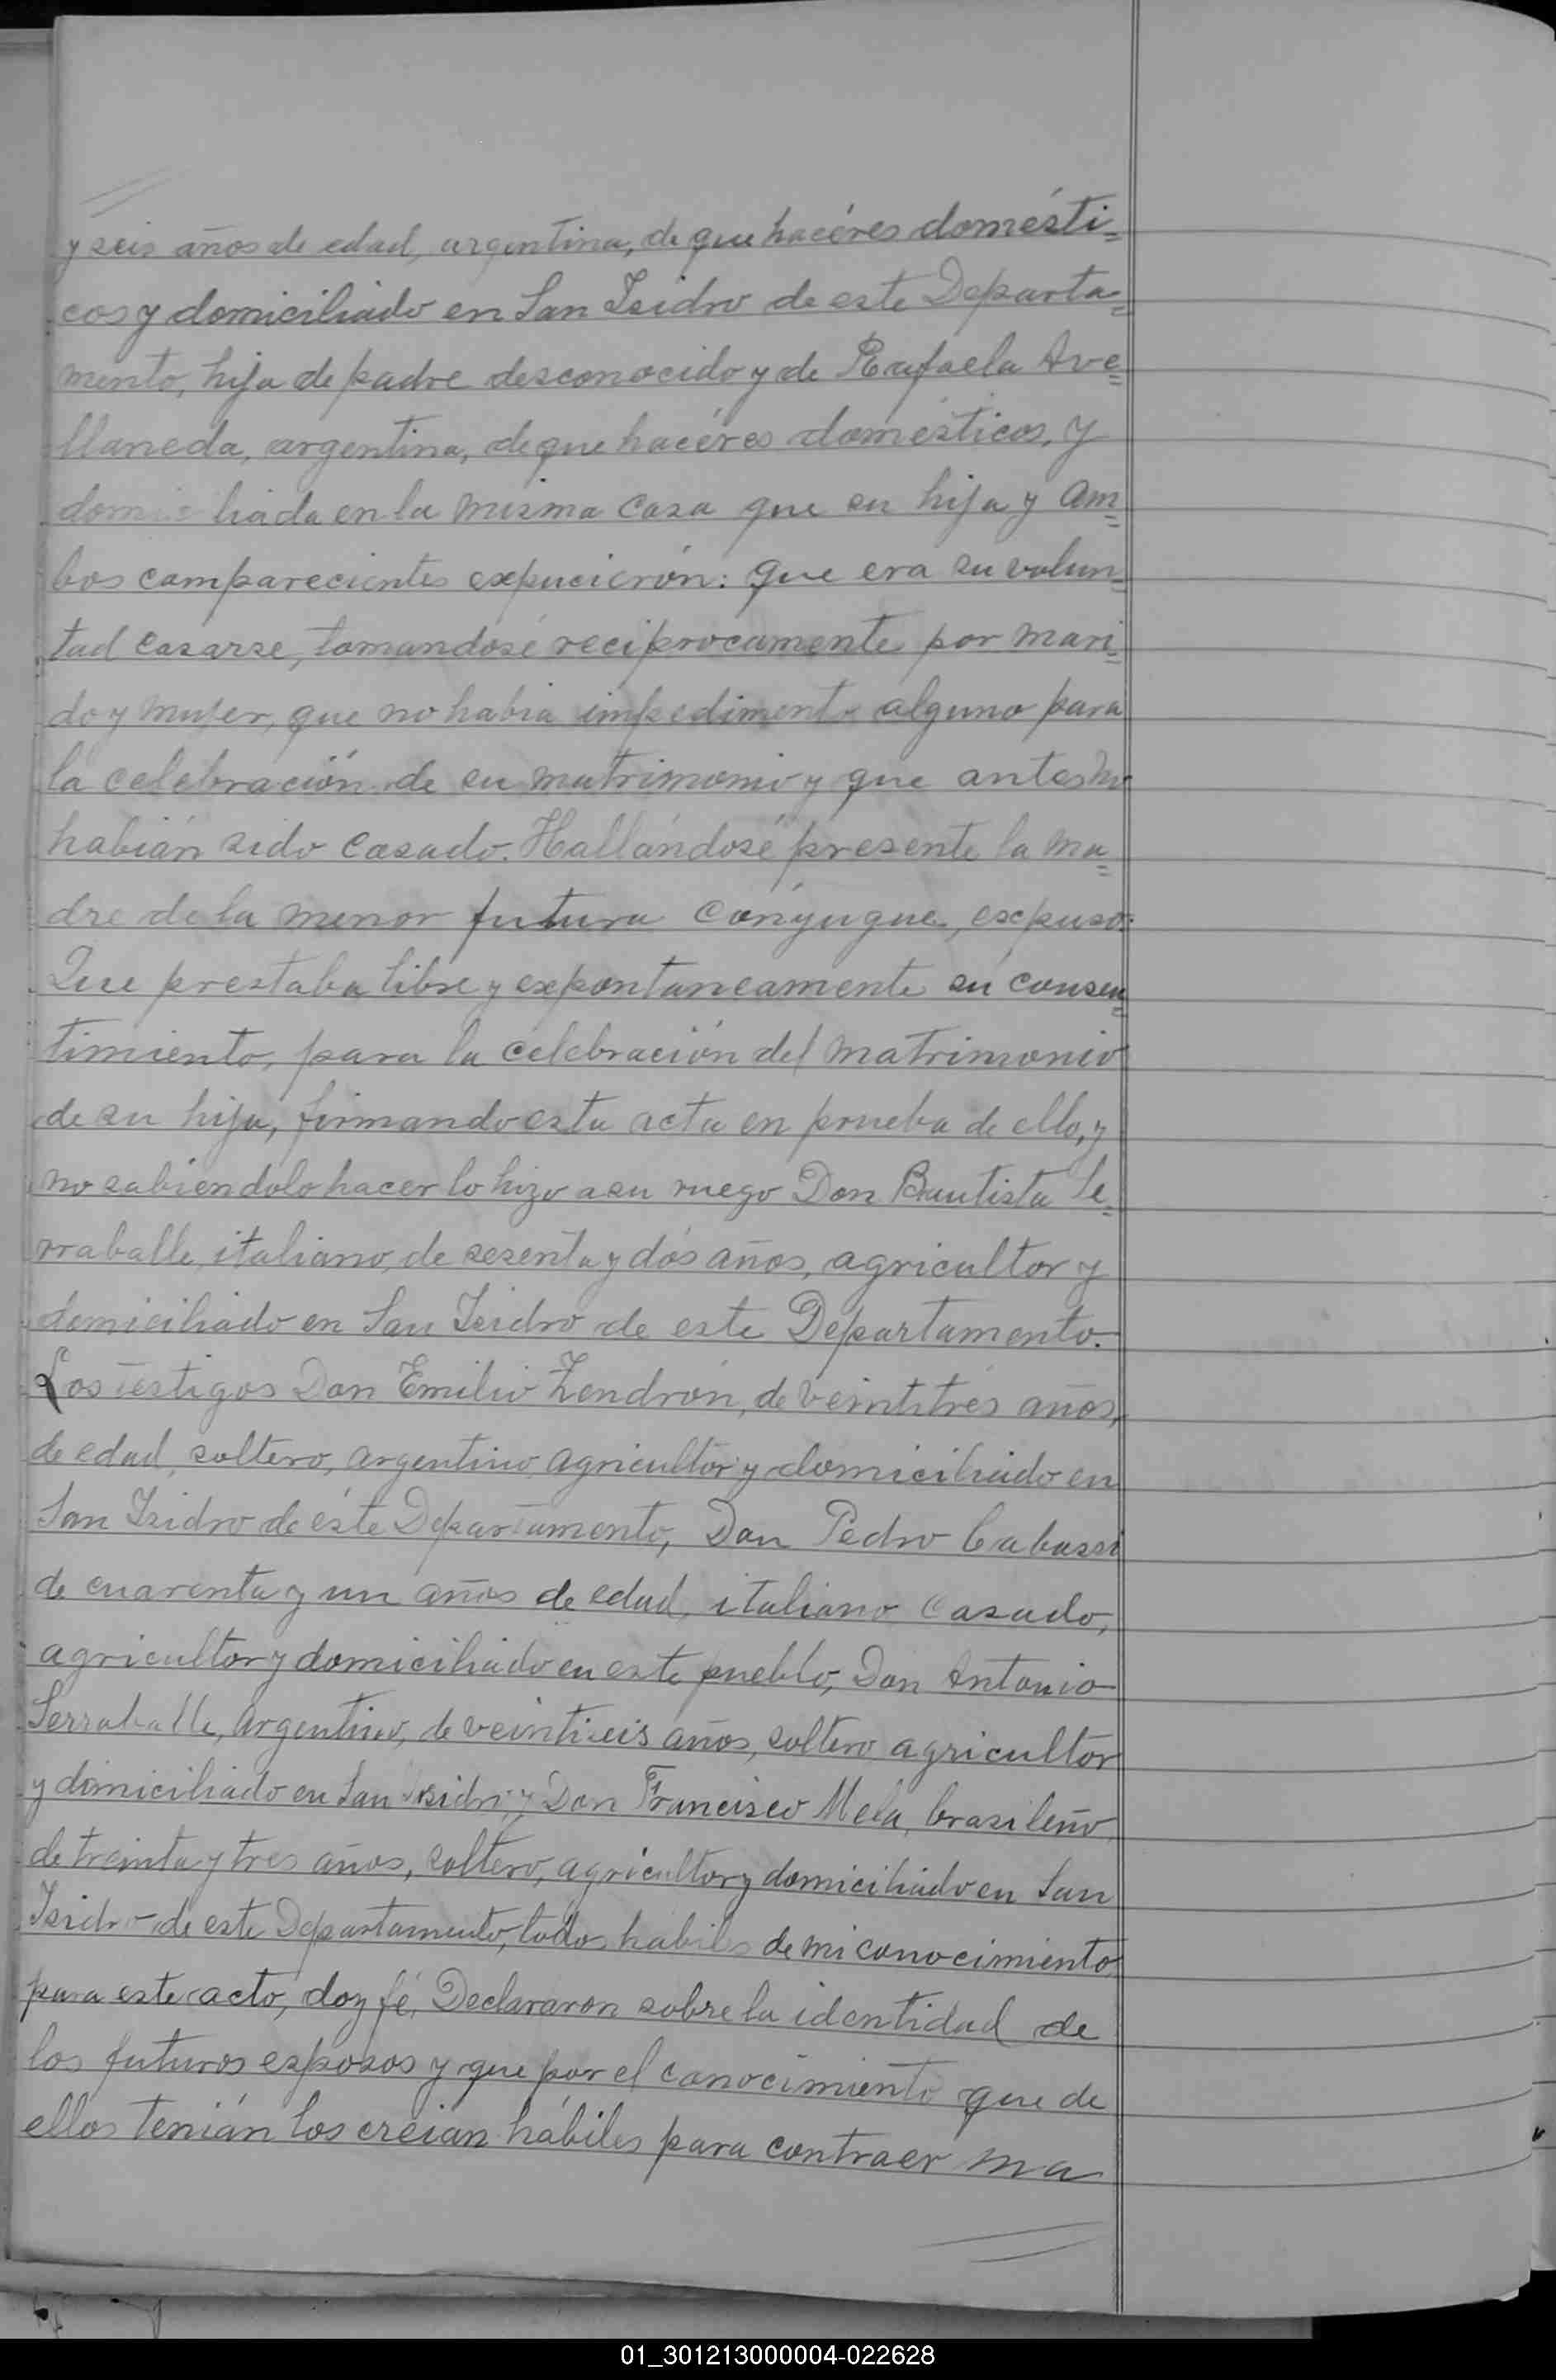 y seis años de edad, argentina, de que hacéres domésti=
cos y domiciliado en San Isidro de este Departa=
mento, hija de padre desconocido y de Rafaela Ave=
llaneda, argentina, de que hacéres domésticos, y
domiciliada en la misma casa que su hija y am=
bos comparecientes expucierón: que era su volun=
tad casarse, tomandosé reciprocamente por mari=
do y mujer, que no habia impedimento alguno para
la celebración de su matrimonio y que antes no
habián sido casado. Hallándosé presente la ma=
dre de la menor futura cónyugue, expuso:
Que prestaba libre y expontaneamente su consen=
timiento, para la celebración del matrimonio
de su hija, firmando esta acta en prueba de ello, y
no sabiendolo hacer lo hizo a su ruego Don Bautista Se=
rraballe, italiano, de sesenta y dós años, agricultor y
domiciliado en San Isidro de este Departamento.
Los testigos Don Emilio Zendrón, de veintitrés años,
de edad, soltero, argentino, agricultor y domiciliado en
San Isidro de éste Departamento, Don Pedro Cabassi
de cuarenta y un años de edad, italiano casado,
agricultor y domiciliado en este pueblo, Don Antonio
Serraballe, argentino, de veintiseis años, soltero agricultor
y domiciliado en San Isidro, y Don Francisco Mela, brasileño,
de treinta y tres años, soltero, agricultor y domiciliado en San
Isidro de este Departamento, todos habiles de mi conocimiento
para este acto, doy fé. Declararon sobre la identidad de
los futuros esposos y que por el conocimiento que de
ellos tenián los creian hábiles para contraer ma
01_301213000004-022628